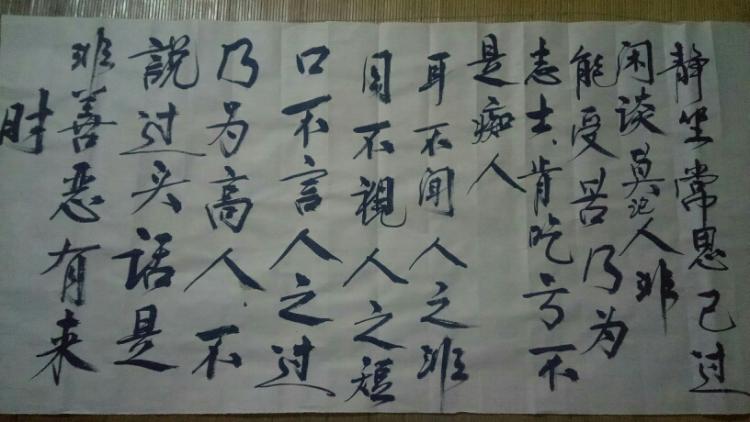 静坐常思己过
闲谈莫记人非
能受苦乃为
志士肯吃亏不
是痴人
耳不闻人之非
目不视人之短
口不言人之过
乃为高人不
说过头话是
非善恶有来
时